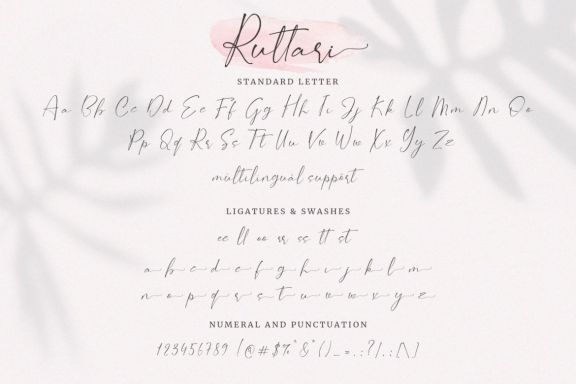 Ruttari
STANDARD LETTER
Aa Bb Cc Dd Ee Ff Gg Hh Ii Jj Kk Ll Mm Nn Oo
Pp Qq Rr Ss Tt Uu Vv Ww Xx Yy Zz
multilingual support
LIGATURES & SWASHES
ee ll oo rr ss tt st
a b c d e f g h i j k l m
n o p q r s t u v w x y z
NUMERAL AND PUNCTUATION
123456789 (@#$%^&*()_=.:?/.:[\]